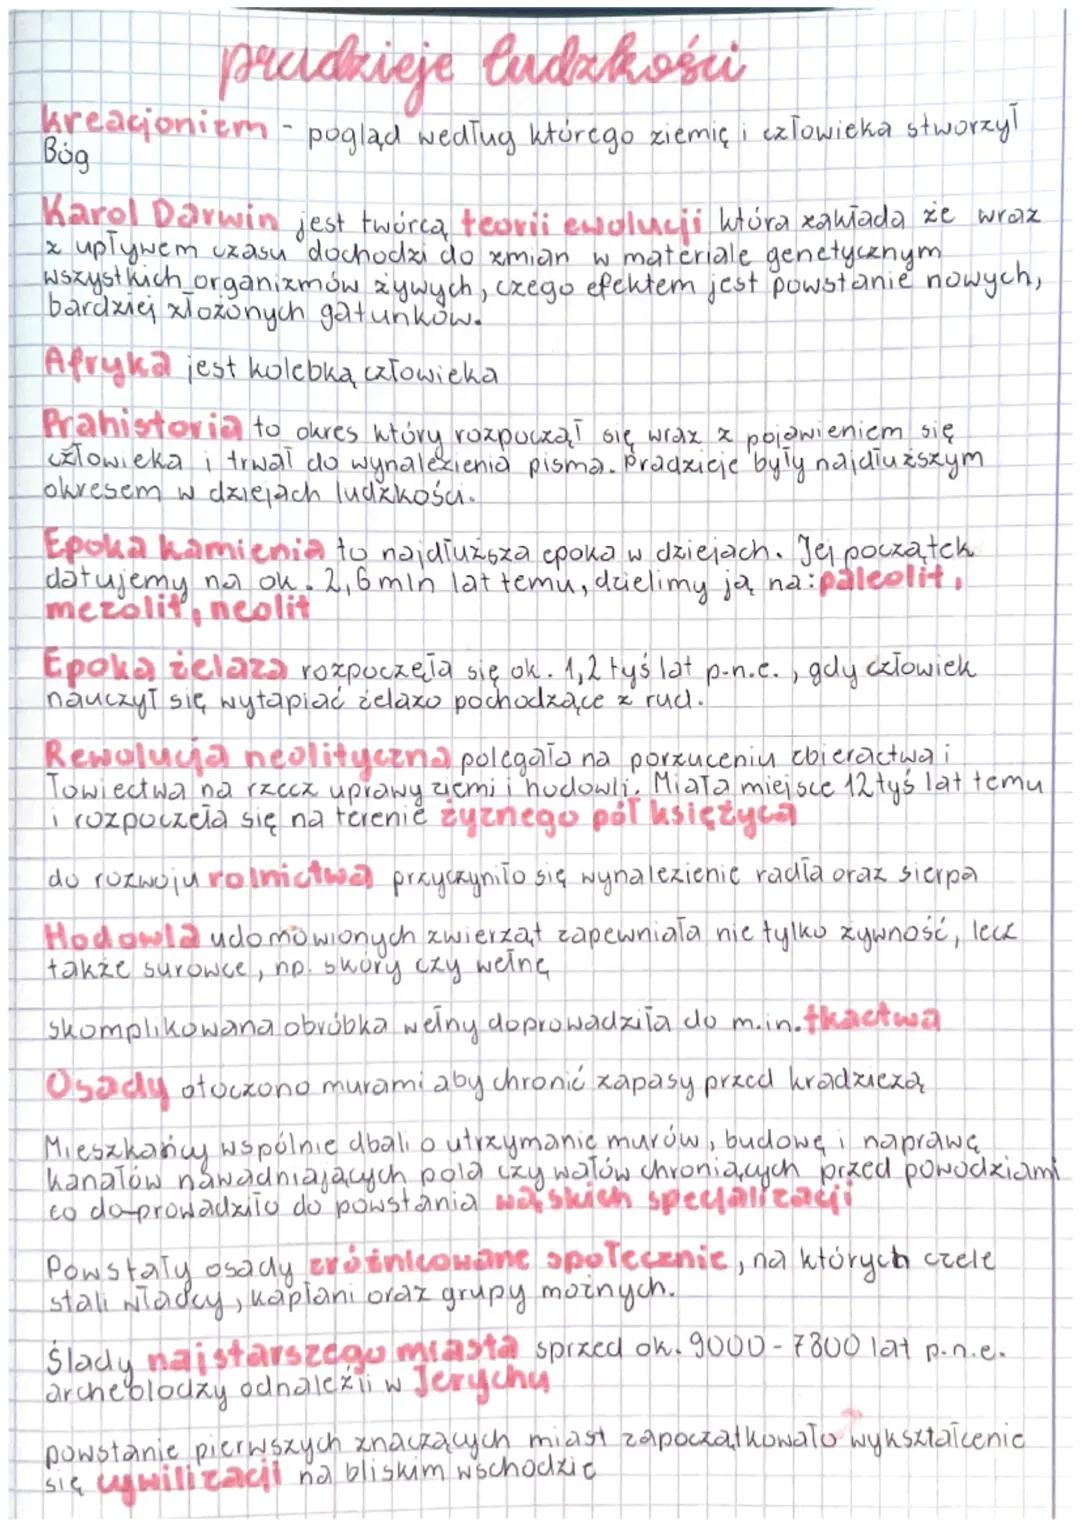 pradzieje ludzkości
kreacjonizm - pogląd według którego ziemię i człowieka stworzył
Bóg
Karol Darwin jest twórcą teorii ewolucji która zakłada że wraz
z upływem czasu dochodzi do zmian w materiale genetycznym
wszystkich organizmów żywych, czego efektem jest powstanie nowych,
bardziej złożonych gatunków.
Afryka jest kolebką człowieka
Prahistoria to okres który rozpoczął się wraz z pojawieniem się
człowieka i trwał do wynalezienia pisma. Pradzieje były najdłuższym
okresem w dziejach ludzkości.
Epoka kamienia to najdłuższa epoka w dziejach. Jej początek
datujemy na ok. 2,6 mln lat temu, dzielimy ją na: paleolit,
mezolit, neolit
Epoka żelaza rozpoczęła się ok. 1,2 tyś lat p.n.e., gdy człowiek
nauczył się wytapiać żelazo pochodzące z rud.
Rewolucja neolityczna polegała na porzuceniu zbieractwa i
łowiectwa na rzecz uprawy ziemi i hodowli. Miała miejsce 12 tyś lat temu
i rozpoczeła się na terenie żyznego pół księżyca
do rozwoju rolnictwa przyczyniło się wynalezienie radła oraz sierpa
Hodowla udomowionych zwierząt zapewniała nie tylko żywność, lecz
także surowce, np. skóry czy wełnę
skomplikowana obróbka wełny doprowadziła do m.in. tkactwa
Osady otoczono murami aby chronić zapasy przed kradzieżą
Mieszkańcy wspólnie dbali o utrzymanie murów, budowę i naprawę
kanałów nawadniających pola czy wałów chroniących przed powodziami
co do-prowadziło do powstania wąskich specjalizacji
Powstały osady zróżnicowane społecznie, na których czele
stali władcy, kapłani oraz grupy możnych.
Ślady najstarszego miasta sprzed ok. 9000 - 7800 lat p.n.e.
archeolodzy odnaleźli w Jerychu
powstanie pierwszych znaczących miast zapoczątkowało wykształcenie
się cywilizacji na bliskim wschodzie